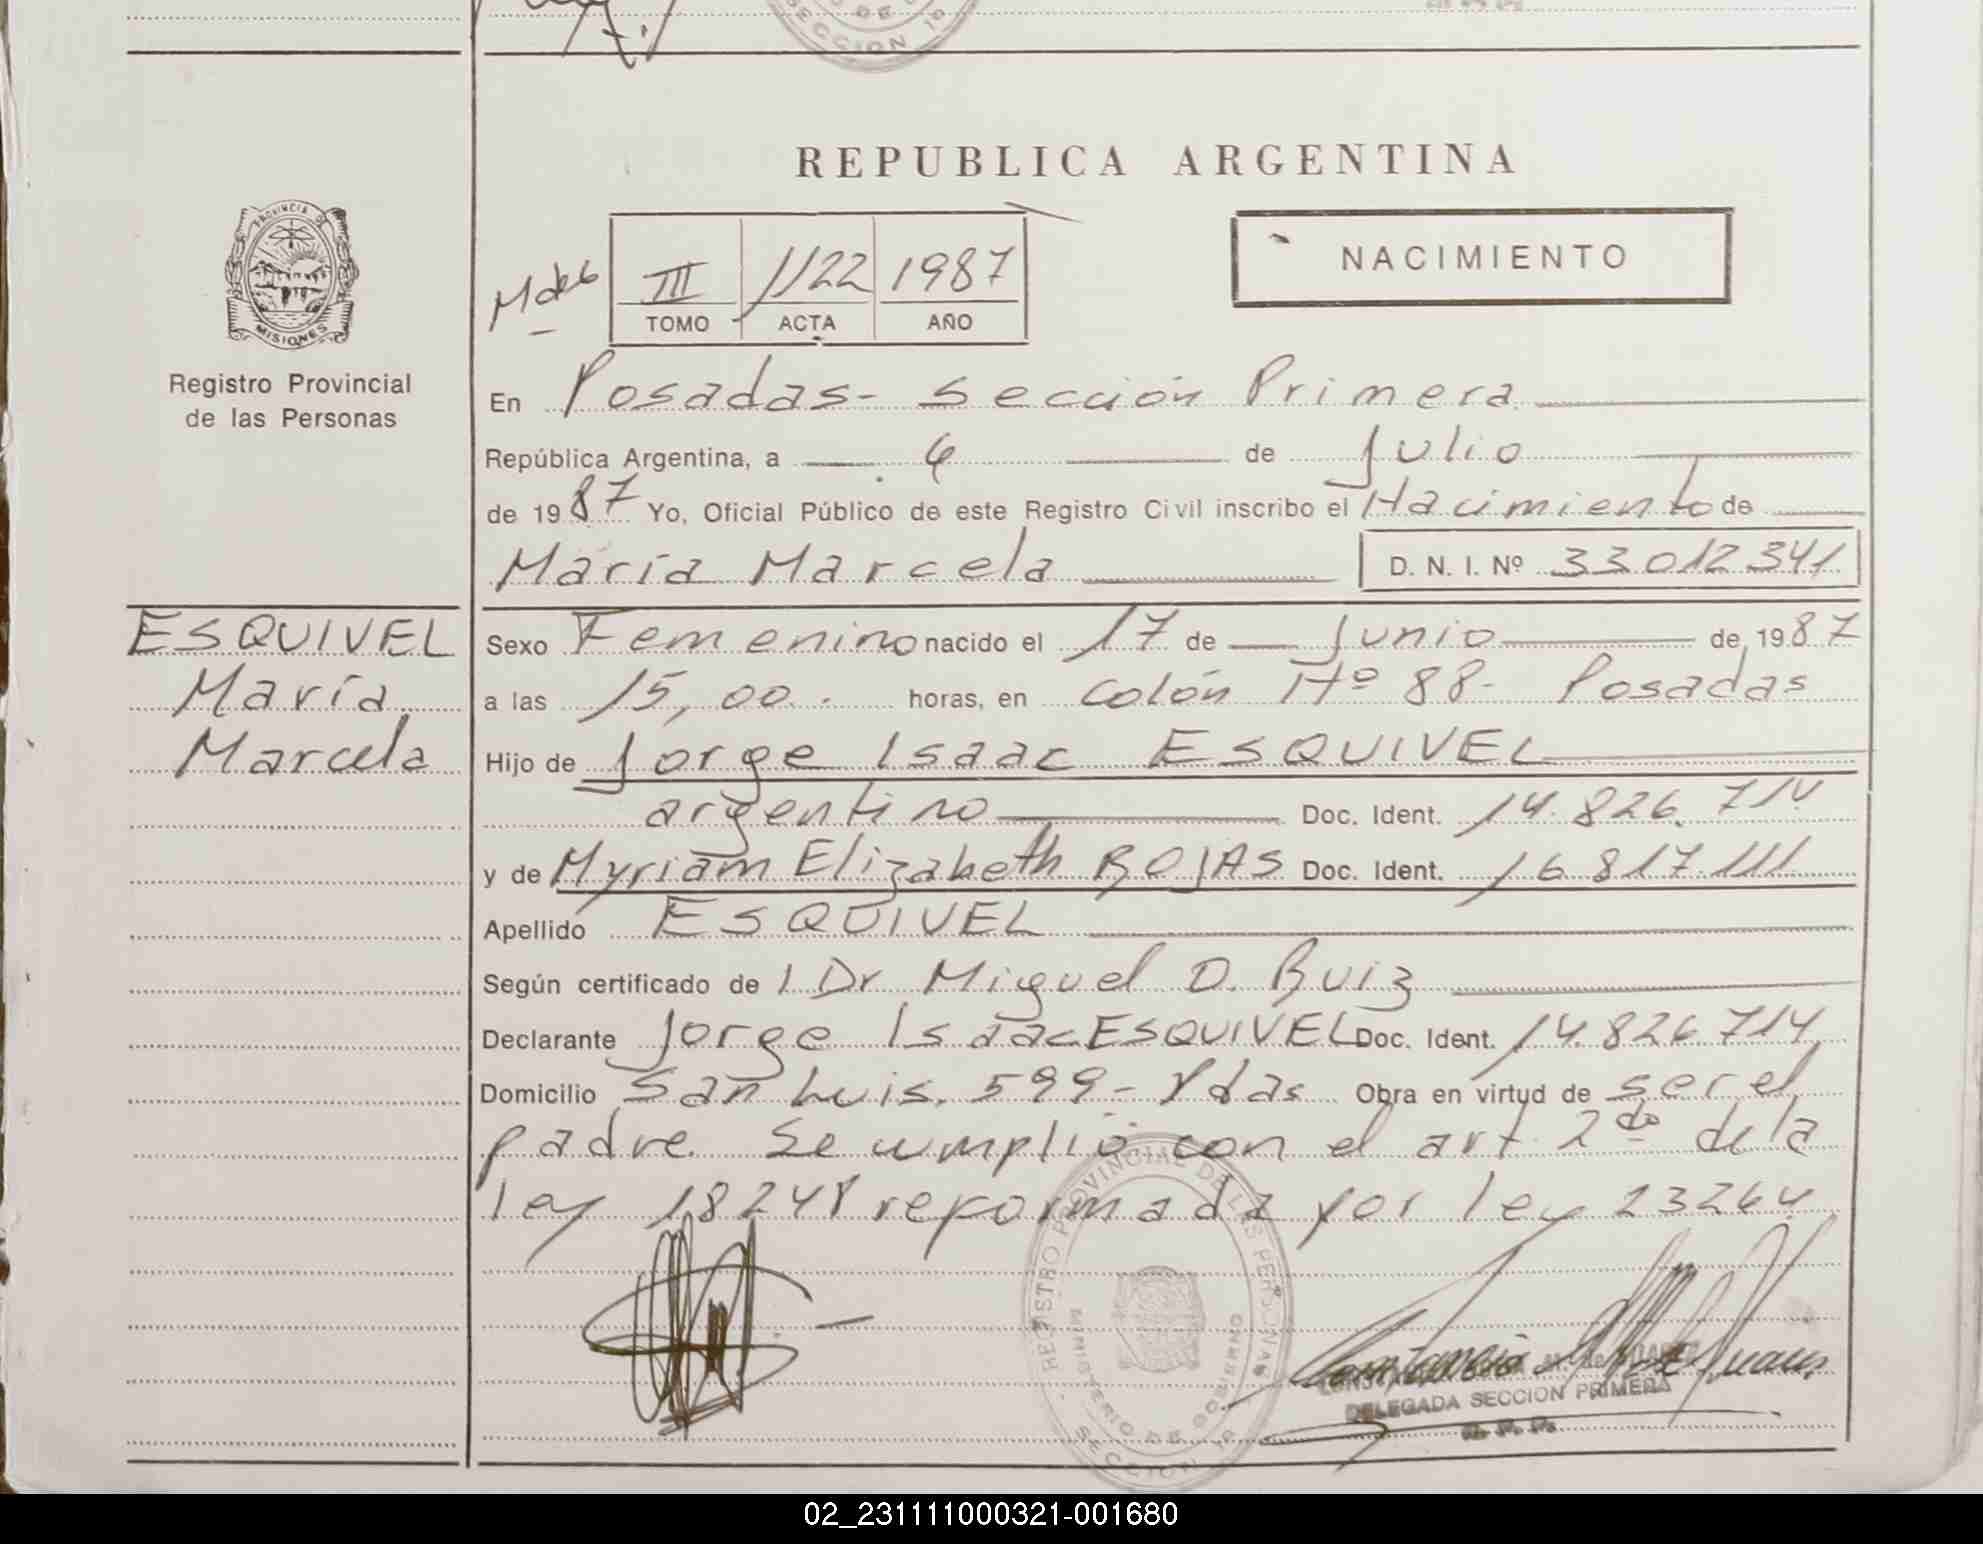 SECCION 1ª
REPUBLICA ARGENTINA
PROVINCIA DE
MISIONES
Registro Provincial
de las Personas
III 1122 1987
TOMO ACTA AÑO
NACIMIENTO
En Posadas- Sección Primera
República Argentina, a 6 de Julio
de 1987 Yo, Oficial Público de este Registro Civil inscribo el Nacimiento de
María Marcela D. N. I. Nº 33012341
ESQUIVEL
María
Marcela
Sexo Femenino nacido el 17 de Junio de 1987
a las 15,00. horas, en Colón Nº 88- Posadas
Hijo de Jorge Isaac ESQUIVEL
argentino Doc. Ident. 14.826.714
y de Myriam Elizabeth ROJAS Doc. Ident. 16.817.111
Apellido ESQUIVEL
Según certificado de l Dr Miguel O. Ruiz
Declarante Jorge Isaac ESQUIVEL Doc. Ident. 14.826.714
Domicilio San Luis. 599- Pdas Obra en virtud de ser el
padre. Se cumplió con el art. 2do de la
ley 18248 reformada por ley 23264.
REGISTRO PROVINCIAL DE LAS PERSONAS
MINISTERIO DE GOBIERNO
SECCION 1ª
DELEGADA SECCION PRIMERA
R. P. P.
02_231111000321-001680